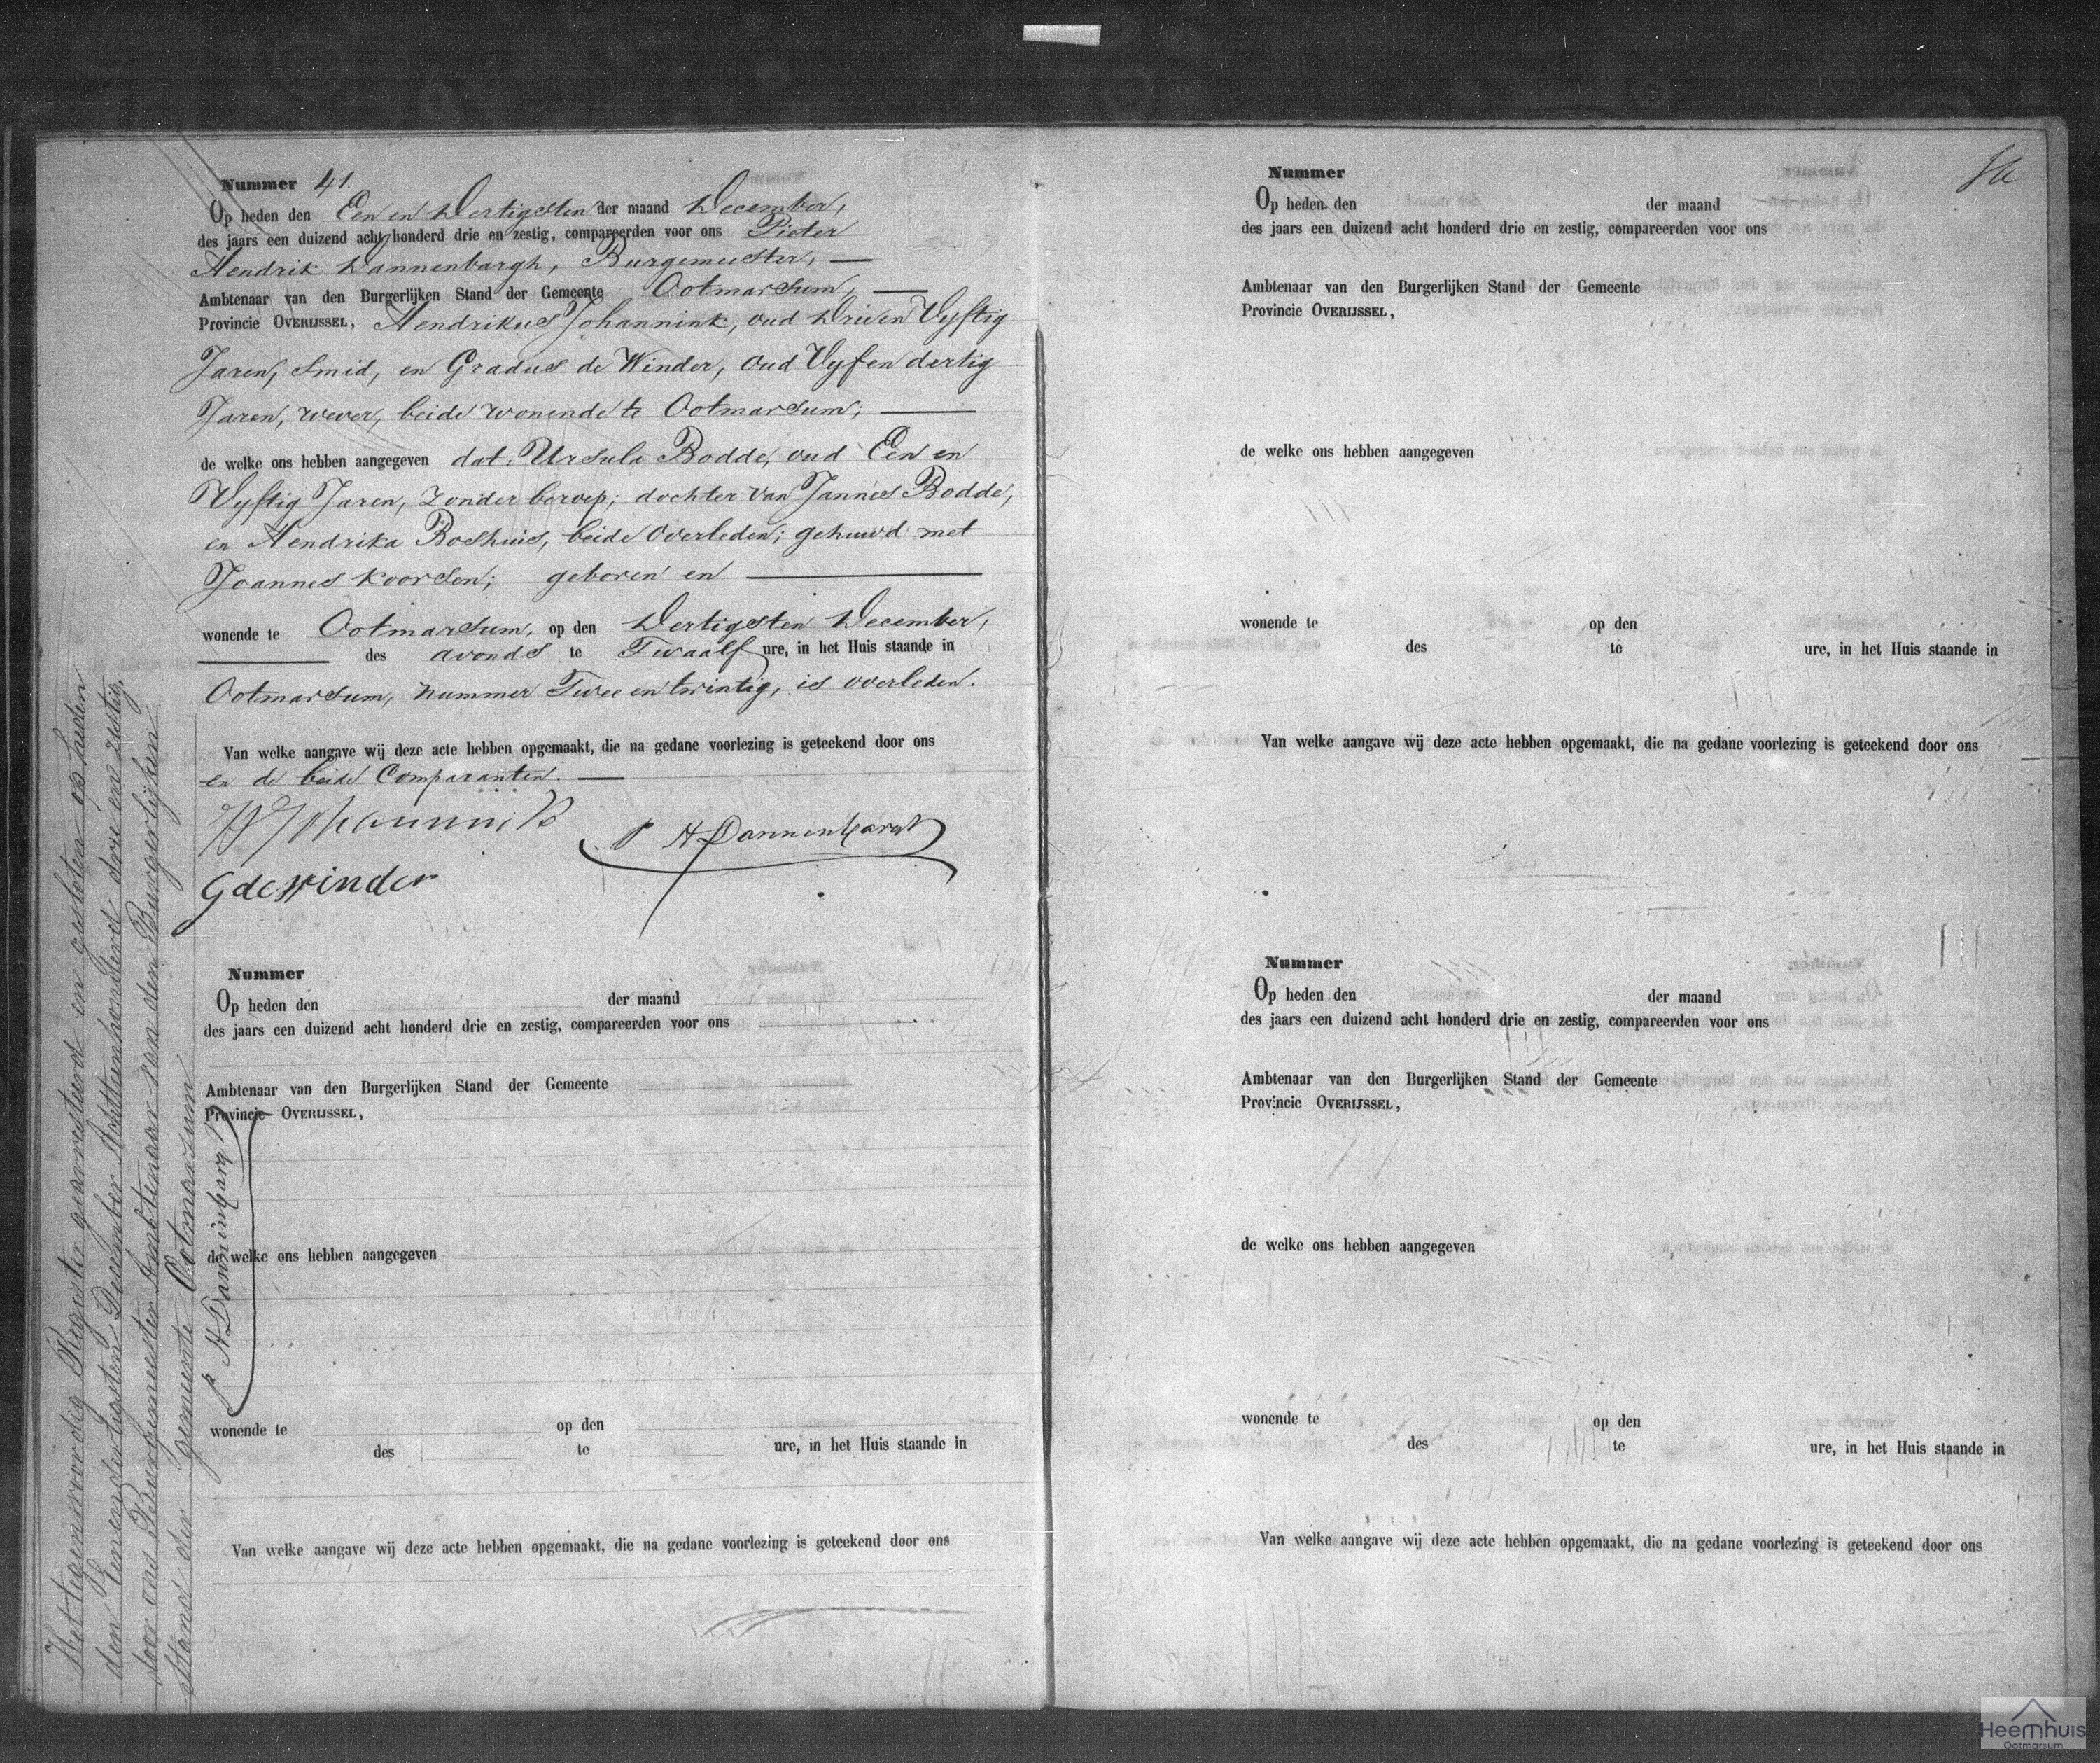 Nummer 41.
Op heden den Een en Dertigsten der maand December,
des jaars een duizend acht honderd drie en zestig, compareerden voor ons Pieter
Hendrik Dannenbargh, Burgemeester,
Ambtenaar van den Burgerlijken Stand der Gemeente Ootmarsum,
Provincie OVERIJSSEL, Hendrikus Johannink, oud Drie en Vyftig
Jaren, Smid, en Gradus de Winder, oud Vyf en dertig
Jaren, wever, beide wonende te Ootmarsum;
de welke ons hebben aangegeven dat: Ursula Bodde, oud Een en
Vyftig Jaren, zonder beroep; dochter van Jannes Bodde,
en Hendrika Boshuis, beide overleden; gehuwd met
Joannes Koorsen; geboren en
wonende te Ootmarsum, op den Dertigsten December,
des avonds te Twaalf ure, in het Huis staande in
Ootmarsum, nummer Twee en twintig, is overleden.
Van welke aangave wij deze acte hebben opgemaakt, die na gedane voorlezing is geteekend door ons
en de beide Comparanten.
HJohannink
P H Dannenbargh
G de Winder
Nummer
Op heden den der maand
des jaars een duizend acht honderd drie en zestig, compareerden voor ons
Ambtenaar van den Burgerlijken Stand der Gemeente
Provincie OVERIJSSEL,
de welke ons hebben aangegeven
wonende te op den
des te ure, in het Huis staande in
Van welke aangave wij deze acte hebben opgemaakt, die na gedane voorlezing is geteekend door ons
Het tegenwoordig Register gearresteerd en gesloten op heden
den Eenendertigsten December Achttienhonderd drie en zestig,
door ons Burgemeester Ambtenaar van den Burgerlijken
Stand der gemeente Ootmarsum
P H Dannenbargh
Nummer
Op heden den der maand
des jaars een duizend acht honderd drie en zestig, compareerden voor ons
Ambtenaar van den Burgerlijken Stand der Gemeente
Provincie OVERIJSSEL,
de welke ons hebben aangegeven
wonende te op den
des te ure, in het Huis staande in
Van welke aangave wij deze acte hebben opgemaakt, die na gedane voorlezing is geteekend door ons
Nummer
Op heden den der maand
des jaars een duizend acht honderd drie en zestig, compareerden voor ons
Ambtenaar van den Burgerlijken Stand der Gemeente
Provincie OVERIJSSEL,
de welke ons hebben aangegeven
wonende te op den
des te ure, in het Huis staande in
Van welke aangave wij deze acte hebben opgemaakt, die na gedane voorlezing is geteekend door ons
Heemhuis
Ootmarsum